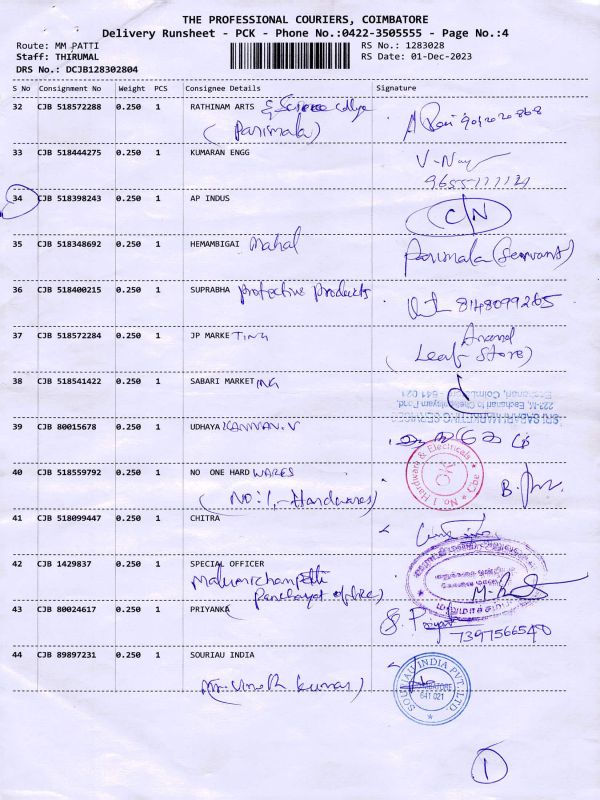 THE PROFESSIONAL COURIERS, COIMBATORE
Delivery Runsheet - PCK - Phone No.:0422-3505555 - Page No.:4
Route: MM PATTI RS No.: 1283028
Staff: THIRUMAL RS Date: 01-Dec-2023
DRS No.: DCJB128302804
S No Consignment No Weight PCS Consignee Details Signature
32 CJB 518572288 0.250 1 RATHINAM ARTS & Science college
(Parimala)
33 CJB 518444275 0.250 1 KUMARAN ENGG V-Nag
34 CJB 518398243 0.250 1 AP INDUS C/N
35 CJB 518348692 0.250 1 HEMAMBIGAI Mahal Parimala (Servant)
36 CJB 518400215 0.250 1 SUPRABHA Protective Products 8148099265
37 CJB 518572284 0.250 1 JP MARKETING Anand
(Leaf Store)
38 CJB 518541422 0.250 1 SABARI MARKETING
SRI SABARI MARKETING SERVICES
222-M, Eachanari to Chettipalayam Road,
Eachanari, Coimbatore - 641 021
39 CJB 80015678 0.250 1 UDHAYA KANNAN.V
40 CJB 518559792 0.250 1 NO ONE HARD WARES
(NO:1,-Hardwares)
No.1 Hardware & Electricals CBE
41 CJB 518099447 0.250 1 CHITRA
42 CJB 1429837 0.250 1 SPECIAL OFFICER
Panchayat office)
43 CJB 80024617 0.250 1 PRIYANKA
7397566540
44 CJB 89897231 0.250 1 SOURIAU INDIA
SOURIAU INDIA PVT. LTD.
COIMBATORE
641 021
1